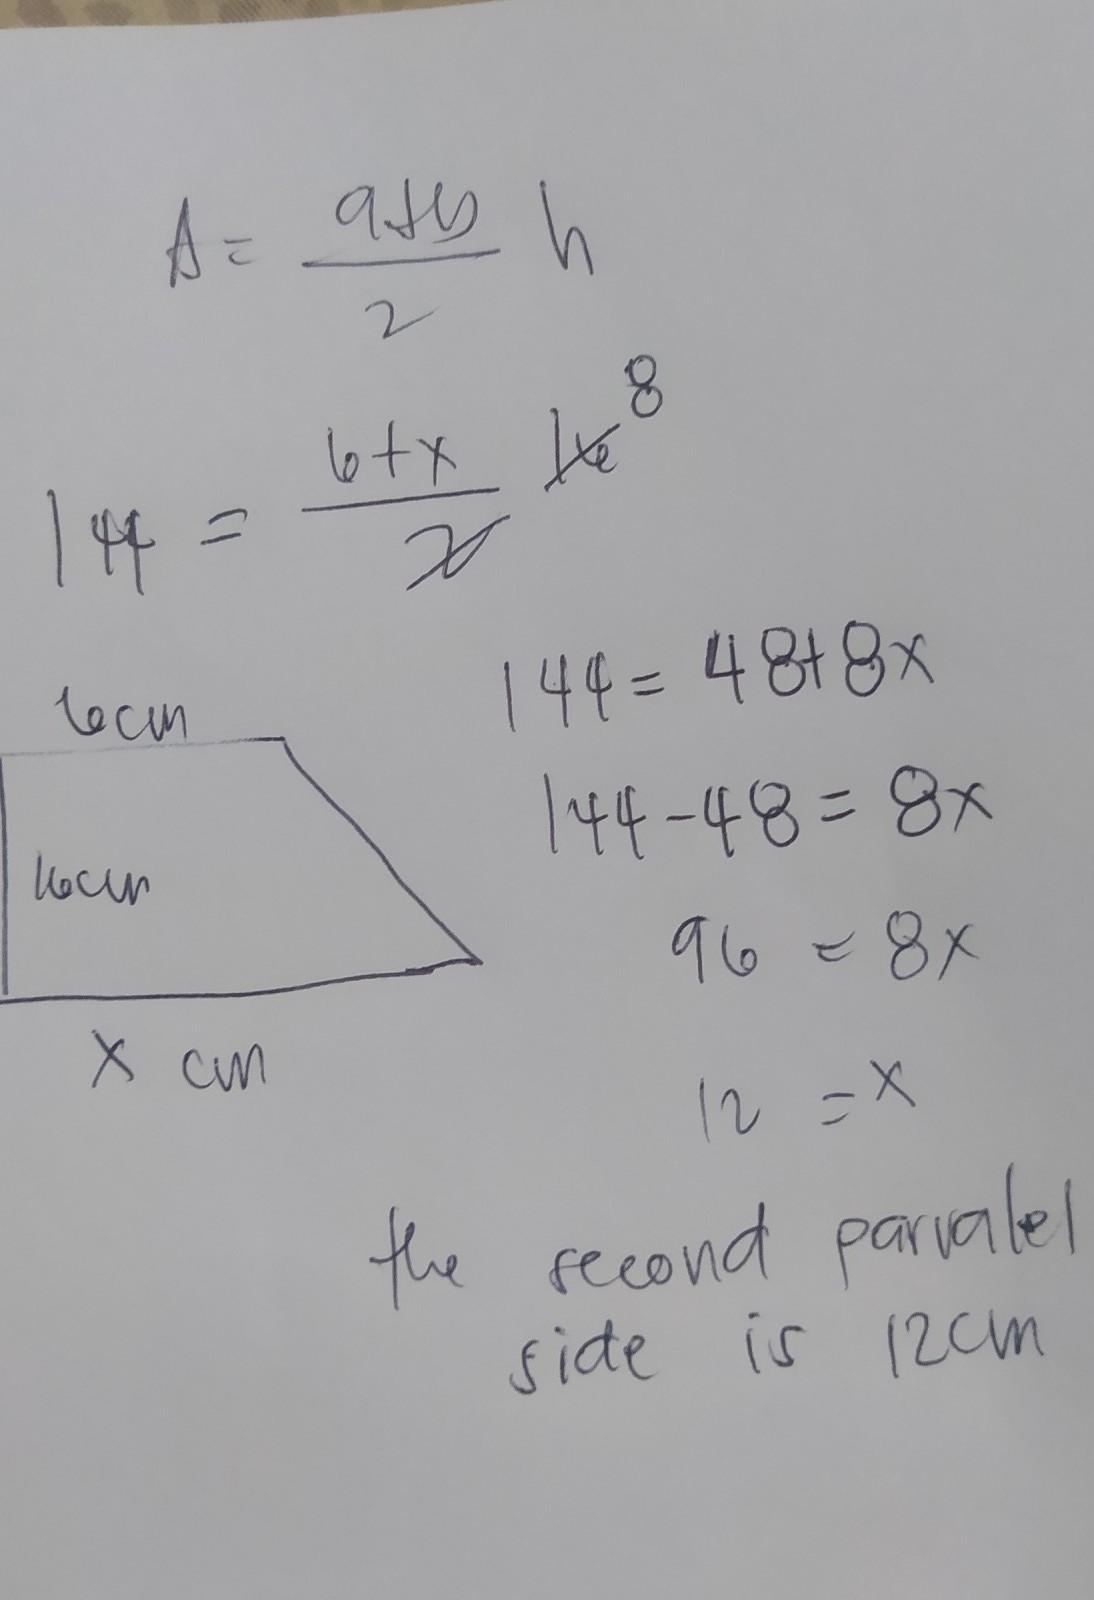 A = a+b/2 h
144 = 6+x/2 16 8
6cm
144 = 48+8x
144-48 = 8x
16cm
96 = 8x
x cm
12 = x
the second parralel
side is 12cm